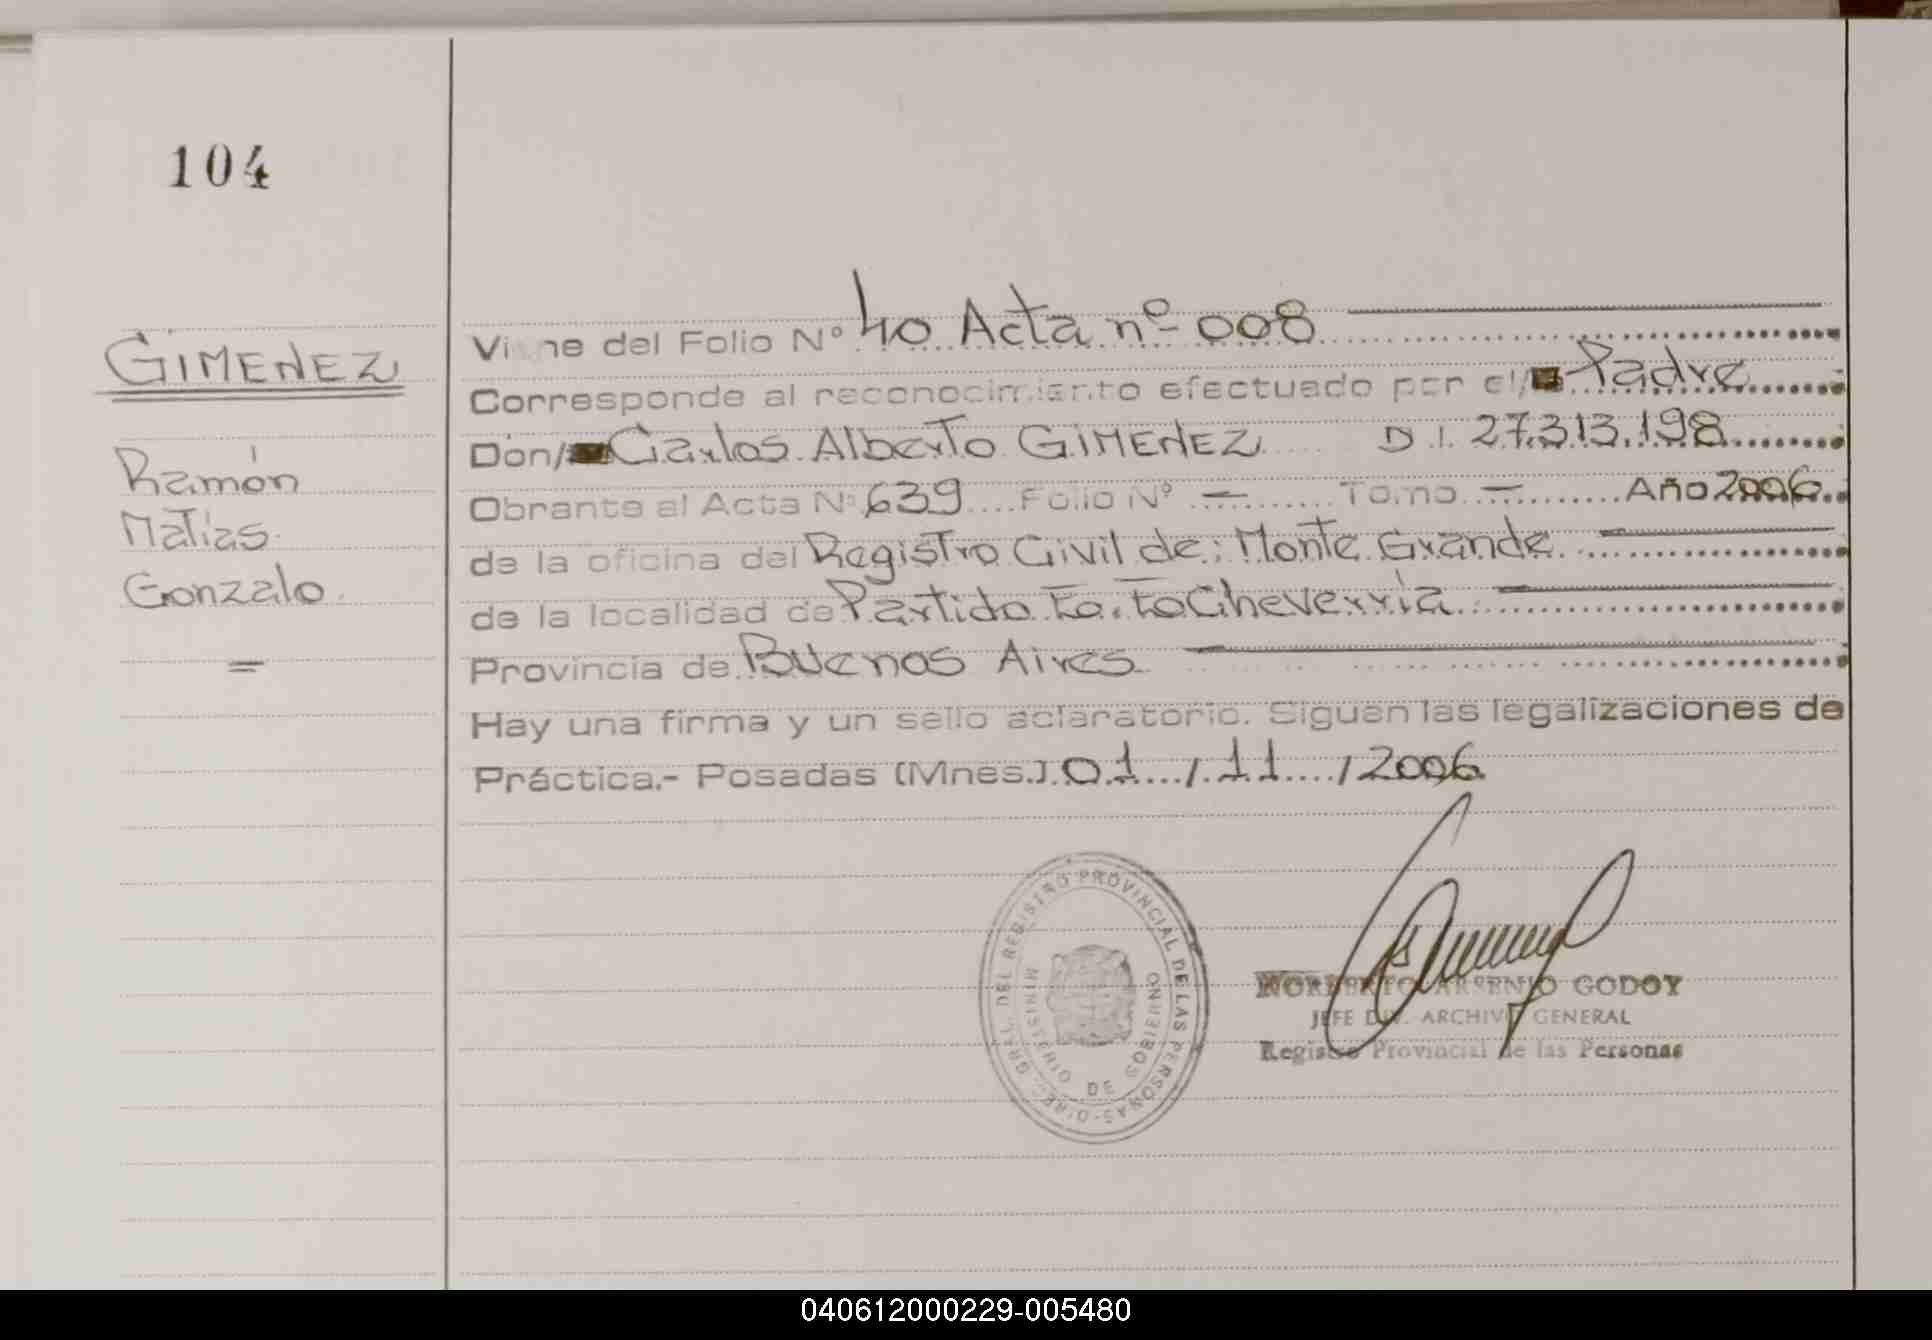 104
GIMENEZ
Ramón
Matías
Gonzalo
=
Viene del Folio Nº 40 Acta nº 008
Corresponde al reconocimiento efectuado por el/ Padre
Don/ Carlos Alberto GIMENEZ D.I. 27.313.198
Obrante al Acta Nº 639 Folio Nº — Tomo — Año 2006
de la oficina del Registro Civil de: Monte Grande
de la localidad de Partido Eo. Echeverria
Provincia de Buenos Aires
Hay una firma y un sello aclaratorio. Siguen las legalizaciones de
Práctica.- Posadas (Mnes.) 01/11/2006
DIREC. GRAL. DEL REGISTRO PROVINCIAL DE LAS PERSONAS
MINISTERIO DE GOBIERNO
NORBERTO ARSENIO GODOY
JEFE DIV. ARCHIVO GENERAL
Registro Provincial de las Personas
040612000229-005480